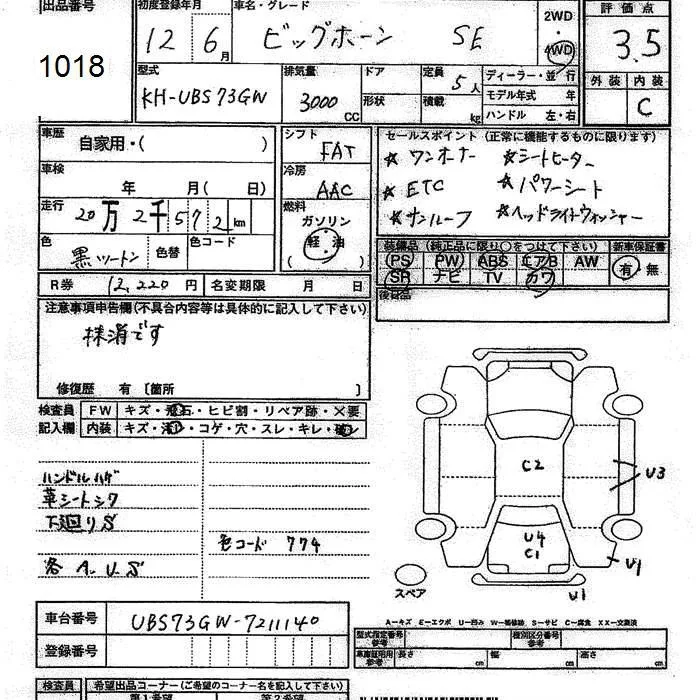 出品番号 初度登録年月 車名・グレード 2WD 評価点
1018 12年6月 ビッグホーン SE ・ 4WD 3.5
型式 排気量 ドア 定員 5人 ディーラー・並行 外装 内装
KH-UBS73GW 3000CC 形状 積載 kg モデル年式 年 C
ハンドル 左・右
車歴 自家用・( ) シフト FAT セールスポイント (正常に機能するものに限ります)
車検 年 月( 日) 冷房 AAC ☆ ワンオーナー ☆シートヒーター
走行 20万2千572km 燃料 ☆ ETC ☆ パワーシート
ガソリン ☆サンルーフ ☆ヘッドライトウォッシャー
色 黒ツートン 色替 色コード 軽油 装備品 (純正品に限り○をつけて下さい) 新車保証書
( ) PS PW ABS エアB AW 有・無
R券 12,220円 名変期限 月 日 SR ナビ TV カワ
後日品
注意事項申告欄(不具合内容等は具体的に記入して下さい)
抹消です
修復歴 有 〔箇所 〕
検査員 FW キズ・飛石・ヒビ割・リペア跡・×要
記入欄 内装 キズ・汚レ・コゲ・穴・スレ・キレ・破レ
ハンドルハゲ
革シートシワ
下廻りS
各 A.U.S
色コード 774
C2
U3
U4
C1
U1
U1
スペア
A=キズ E=エクボ U=凹み W=補修跡 S=サビ C=腐食 XX=交換済
車台番号 UBS73GW-7211140
登録番号
型式指定番号 参考 種別区分番号 参考
参考 長さ cm 幅 cm 高さ cm
検査員 希望出品コーナー(ご希望のコーナー名を記入して下さい)
第1希望 第2希望